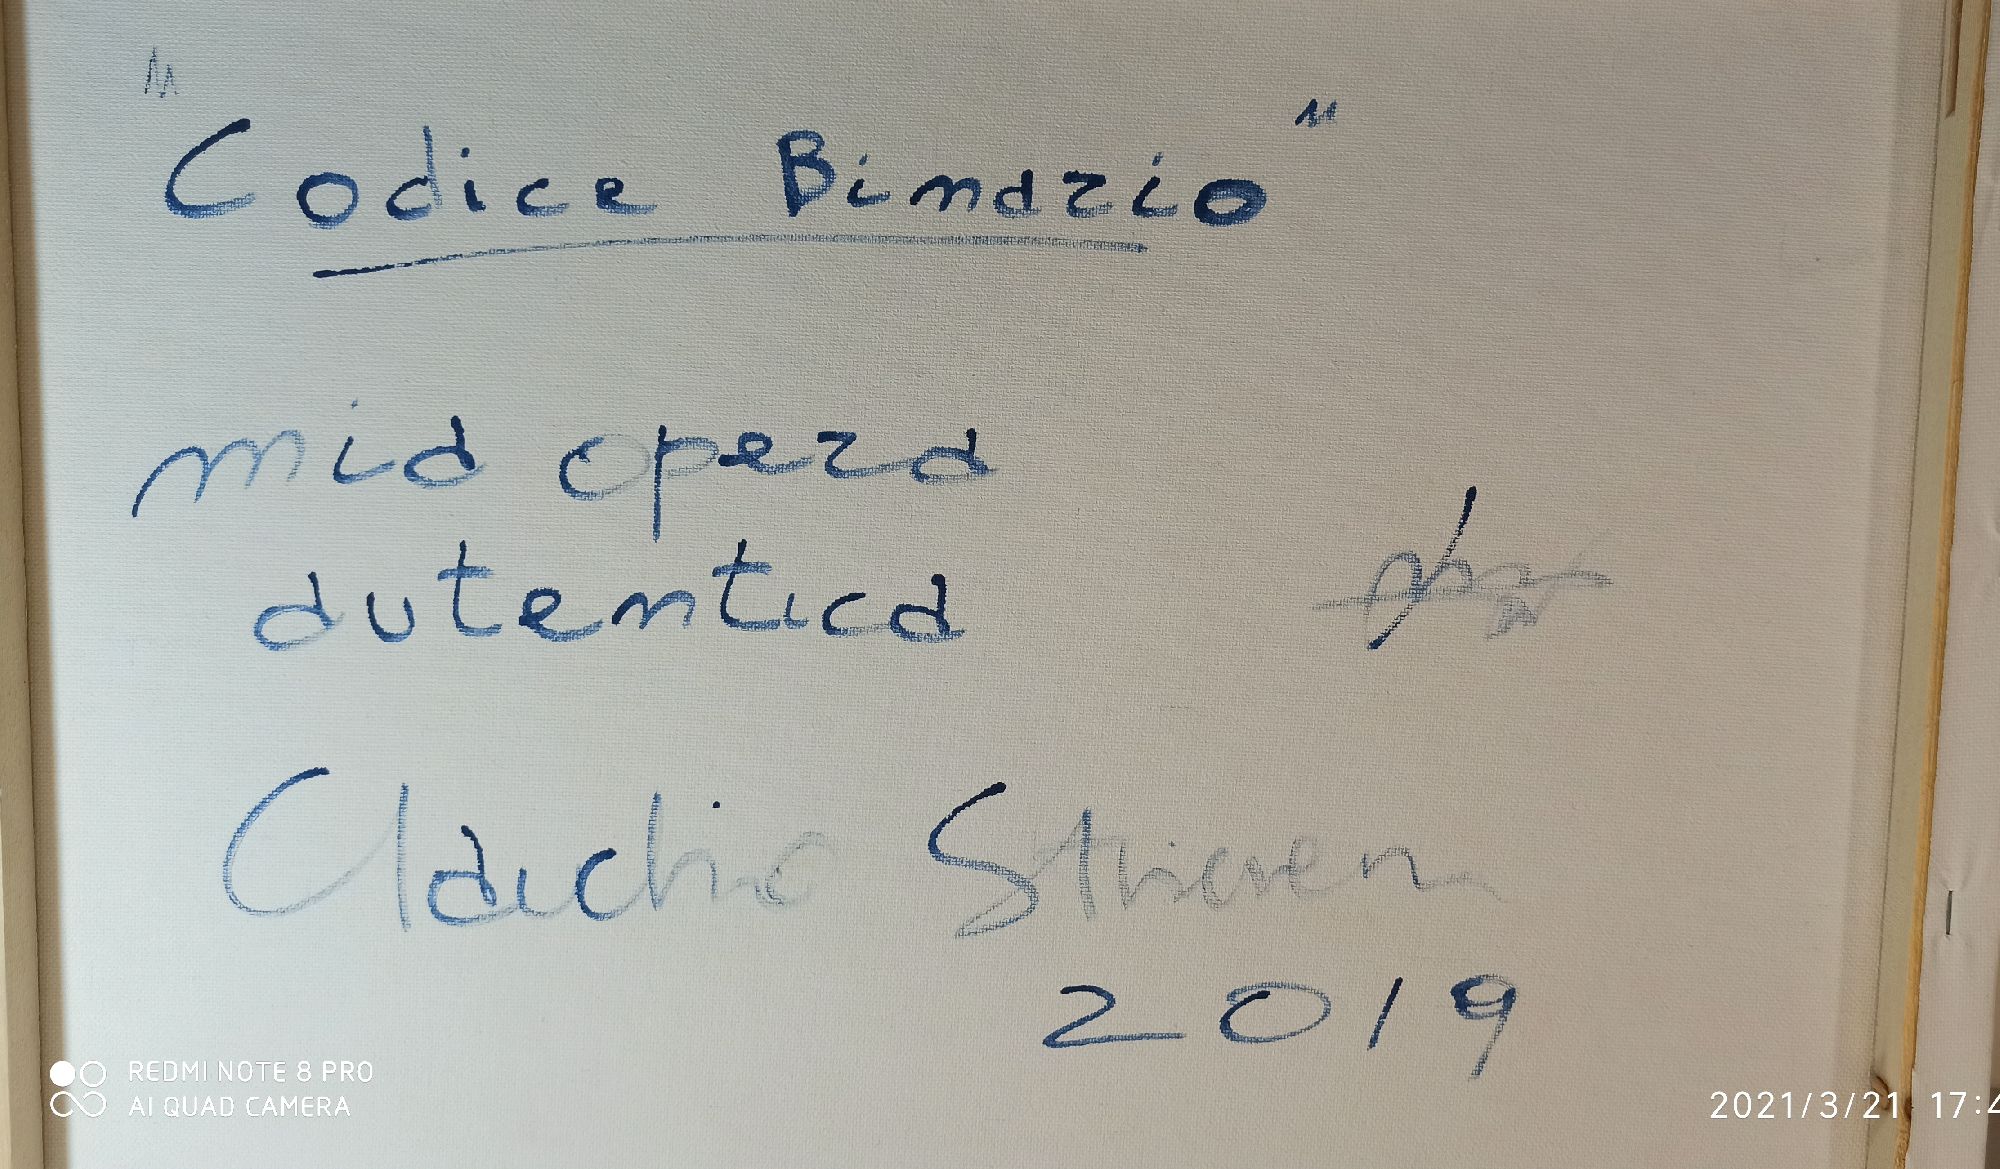 "Codice Binario"
mia opera
autentica
Claudio
2019
REDMI NOTE 8 PRO
AI QUAD CAMERA
2021/3/21 17:4